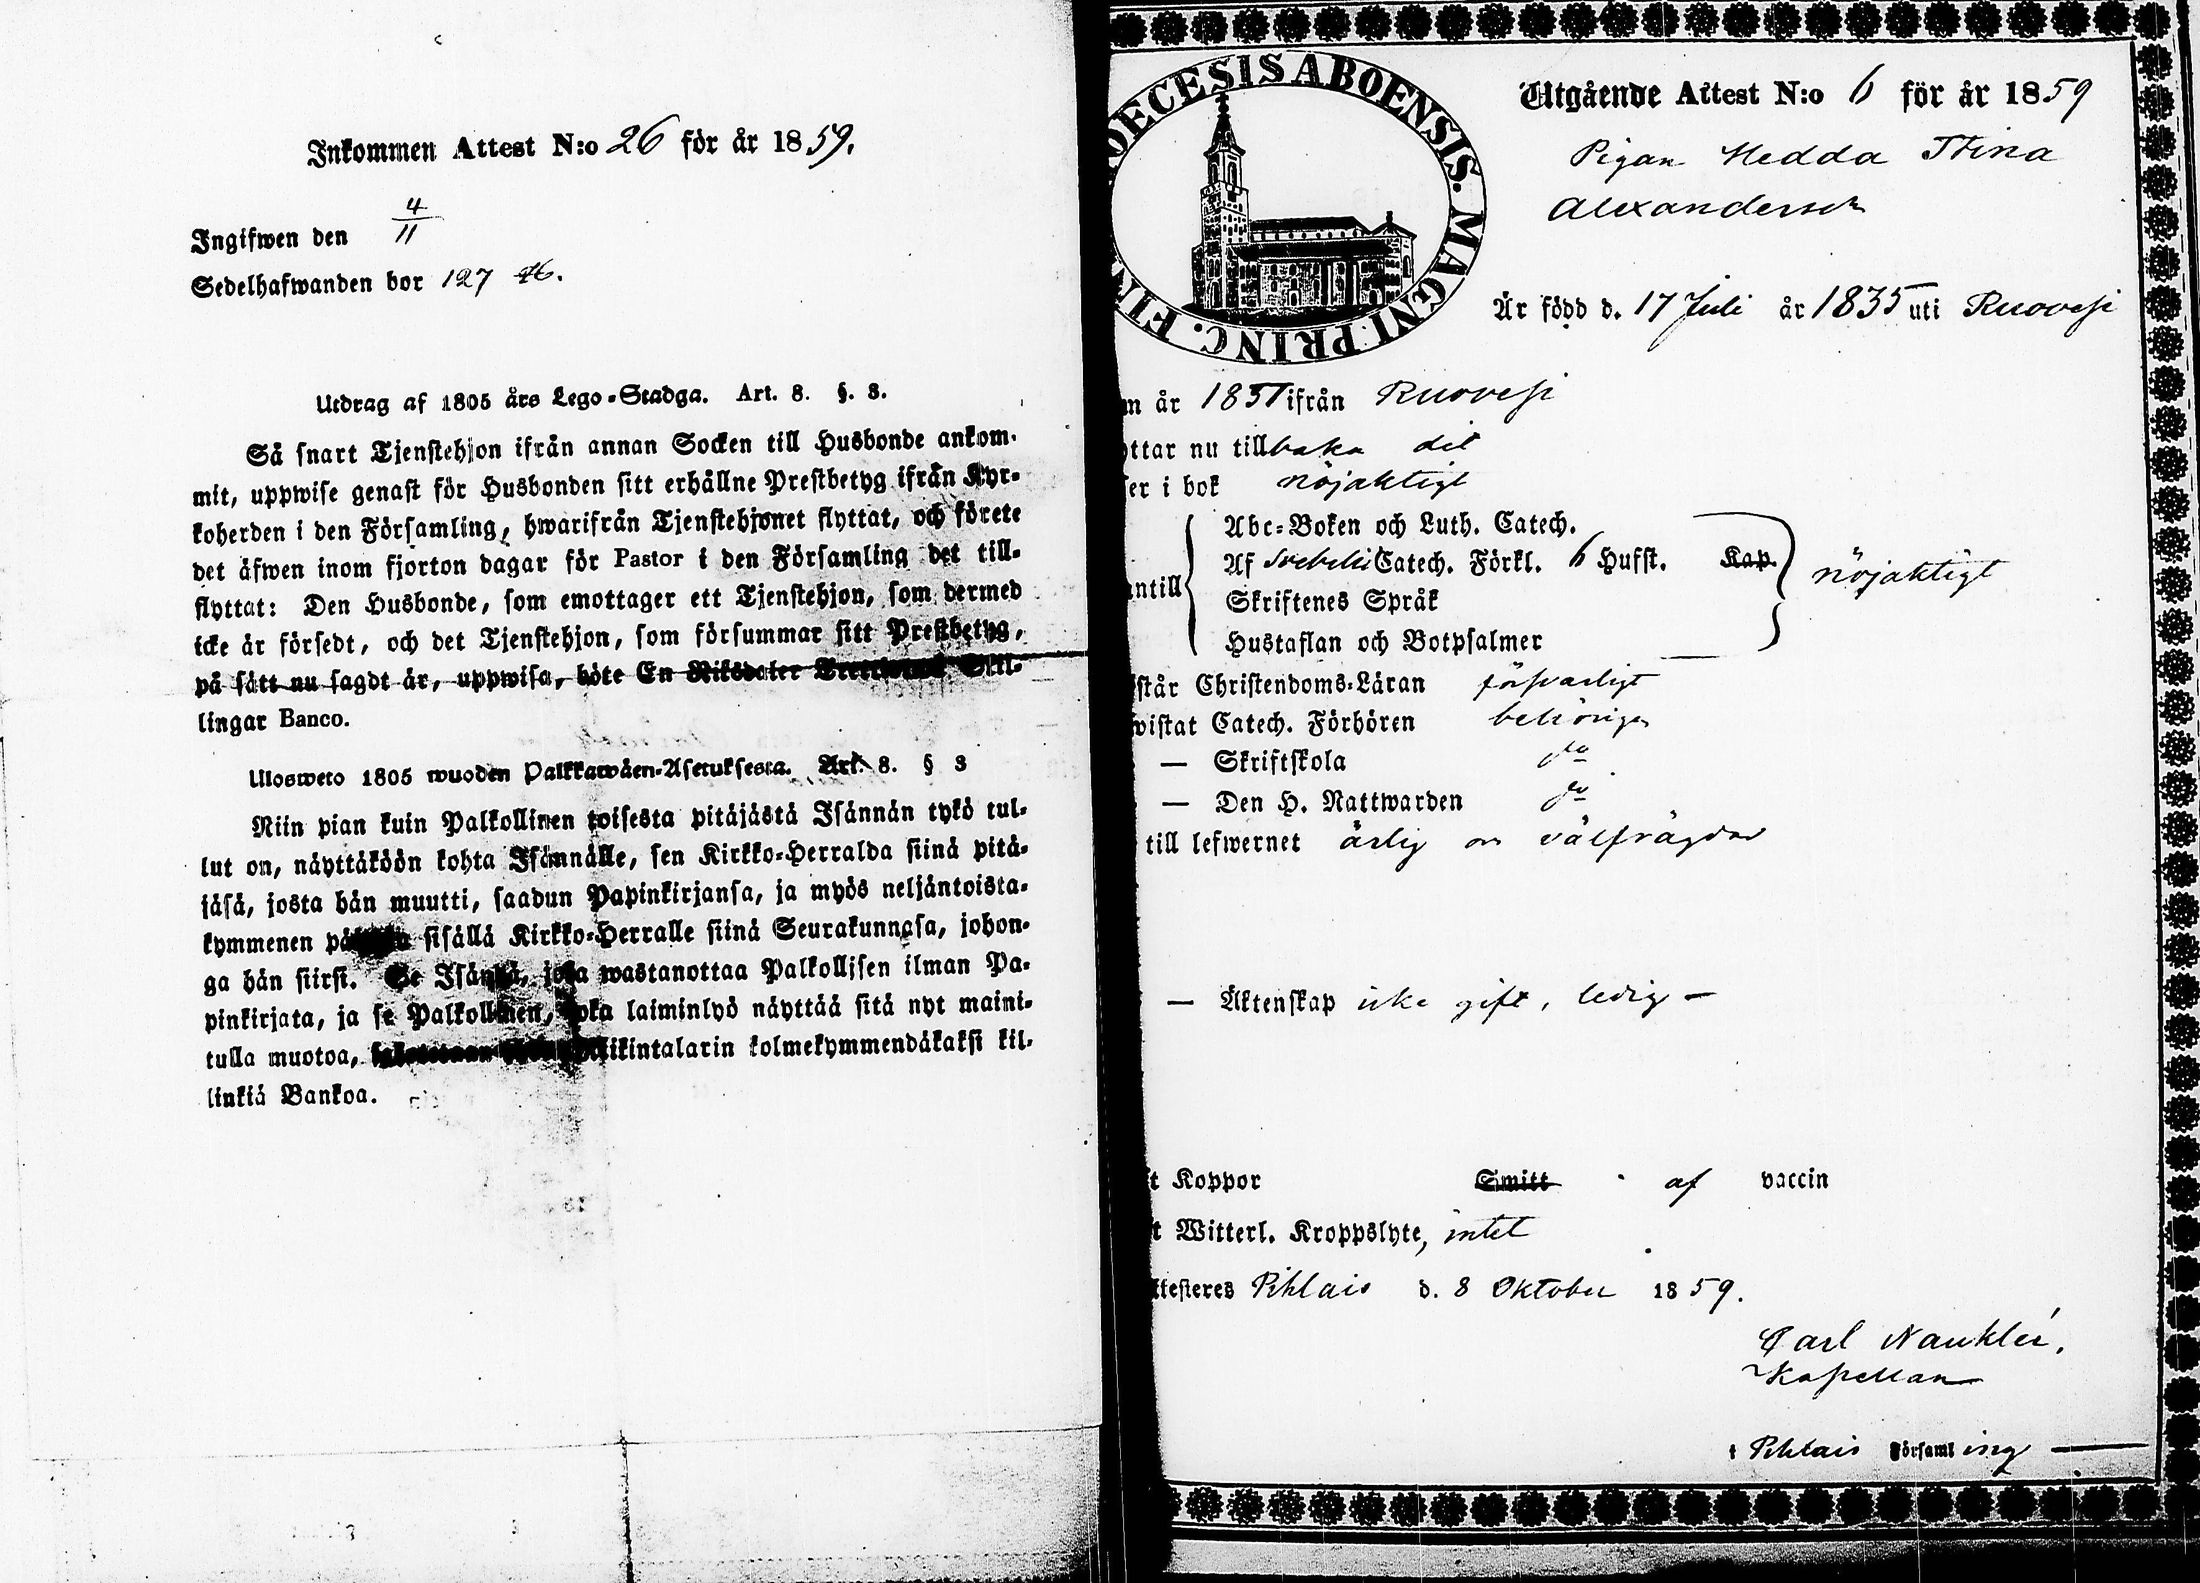 Inkommen Attest N:o 26 för år 1859.
Ingifwen den 4/11
Sedelhafwanden bor 127
Utdrag af 1805 års Lego-Stadga. Art. 8. §. 3.
Så snart Tjenstehjon ifrån annan Socken till Husbonde ankom-
mit, uppwise genast för Husbonden sitt erhållne Prestbetyg ifrån Kyr-
koherden i den Församling, hwarifrån Tjenstehjonet flyttat, och förete
det äfwen inom fjorton dagar för Pastor i den Församling det till-
flyttat: Den Husbonde, som emottager ett Tjenstehjon, som dermed
icke är försedt, och det Tjenstehjon, som försummar sitt Prestbetyg,
på sätt nu sagdt är, uppwisa, böte En Riksdaler Skil-
lingar Banco.
Ulosweto 1805 wuoden Palkkawäen-Asetuksesta. Art. 8. § 3
Niin pian kuin Palkollinen toisesta pitäjästä Isännän tykö tul-
lut on, näyttäköön kohta Isännälle, sen Kirkko-Herralda siinä pitä-
jäsä, josta hän muutti, saadun Papinkirjansa, ja myös neljäntoista-
kymmenen sisällä Kirkko-Herralle siinä Seurakunnasa, johon-
ga hän siirsi. Se Isäntä, joka wastanottaa Palkollisen ilman Pa-
pinkirjata, ja se Palkollinen, joka laiminlyö näyttää sitä nyt maini-
tulla muotoa, Riikintalarin kolmekymmendäkaksi kil-
linkiä Bankoa.
DIOECESIS ABOENSIS. MAGNI PRINC. FIN
Utgående Attest N:o 6 för år 1859
Pigan Hedda Stina
Alexandersdr
Är född d. 17 Juli år 1835 uti Ruovesi
m år 1857 ifrån Ruovesi
yttar nu tillbaka dit
ser i bok nöjaktigt
antill
Abc-Boken och Luth. Catech.
Af Svebelii Catech. Förkl. 6 Hufst. Kap.
Skriftenes Språk
Hustaflan och Botpsalmer
nöjaktigt
står Christendoms-Läran försvarligt
wistat Catech. Förhören behörigen
— Skriftskola do
— Den H. Nattwarden do
till lefwernet ärlig och välfrägdad
— Äktenskap icke gift, ledig —
t Koppor Smitt af vaccin
t Witterl. Kroppslyte, intet
ttesteres Pihlais d. 8 Oktober 1859.
Carl Nauklér,
Kapellan
i Pihlais Församling